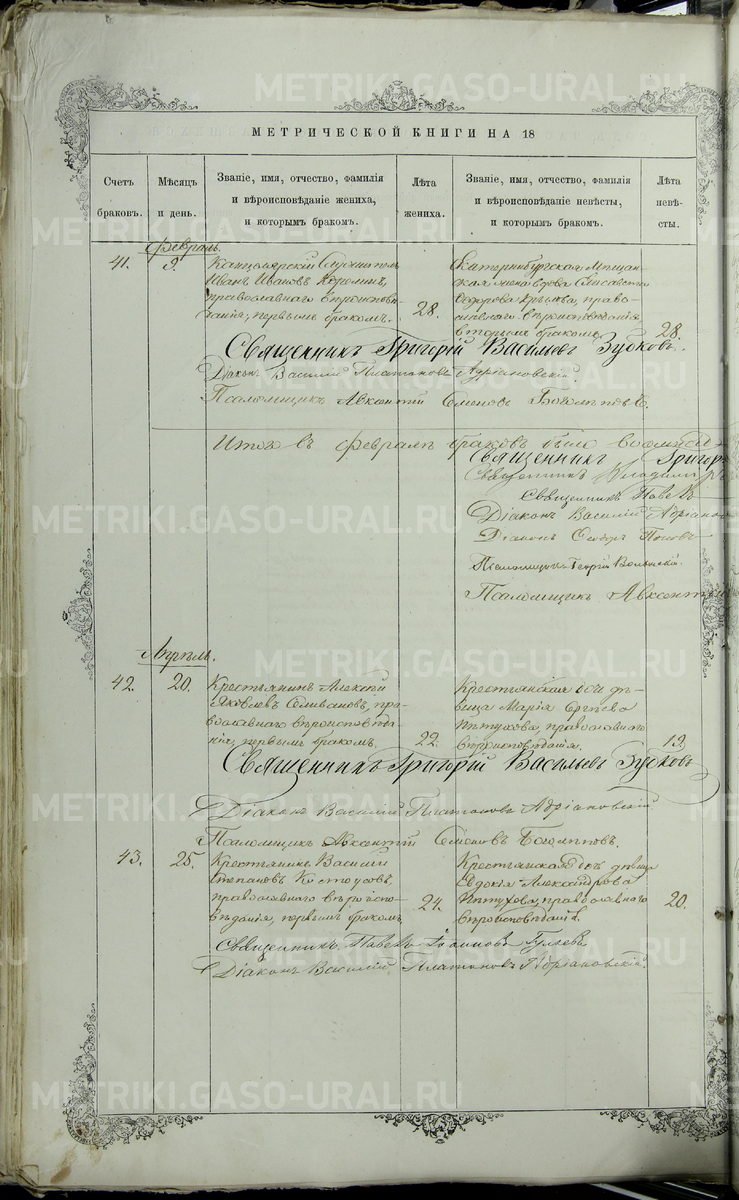 МЕТРИЧЕСКОЙ КНИГИ НА 18
Счетъ браковъ.
Мѣсяцъ и день.
Званіе, имя, отчество, фамилія и вѣроисповѣданіе жениха, и которымъ бракомъ.
Лѣта жениха.
Званіе, имя, отчество, фамилія и вѣроисповѣданіе невѣсты, и которымъ бракомъ.
Лѣта невѣсты.
Февраль.
41.
9.
Канцелярскій Служитель
Иванъ Ивановъ
православнаго вѣроиспове-
данія, первымъ бракомъ.
28.
Екатеринбургская Мѣщан-
ская вдова Елисавета
Ѳедорова Крылова, право-
славнаго вѣроисповѣданія
вторымъ бракомъ.
28.
Священникъ Григорій Васильевъ Зубковъ.
Діаконъ Василій Платоновъ Адріановскій.
Псаломщикъ Авксентій Семеновъ
Итого въ февралѣ браковъ было
Священникъ Григор
Священникъ Владиміръ
Священникъ Павелъ
Діаконъ Василій Адріано
Діаконъ Поповъ
Псаломщикъ Георгій
Псаломщикъ Авксентій
Апрѣль.
42.
20.
Крестьянинъ Алексѣй
Яковлевъ Селивановъ, пра-
вославнаго вѣроисповѣда-
нія, первымъ бракомъ.
22.
Крестьянская дочь дѣ-
вица Марія Сергѣева
Пѣтухова, православнаго
вѣроисповѣданія.
19.
Священникъ Григорій Васильевъ Зубковъ
Діаконъ Василій Платоновъ Адріановскій
Псаломщикъ Авксентій Семеновъ
43.
25.
Крестьянинъ Василій
Степановъ Костоусовъ,
православнаго вѣроиспо-
вѣданія, первымъ бракомъ
24.
Крестьянская дочь дѣвица
Евдокія Александрова
Пѣтухова, православнаго
вѣроисповѣданія.
20.
Священникъ Павелъ Іоанновъ Гуляевъ
Діаконъ Василій Платоновъ Адріановскій.
METRIKI.GASO-URAL.RU